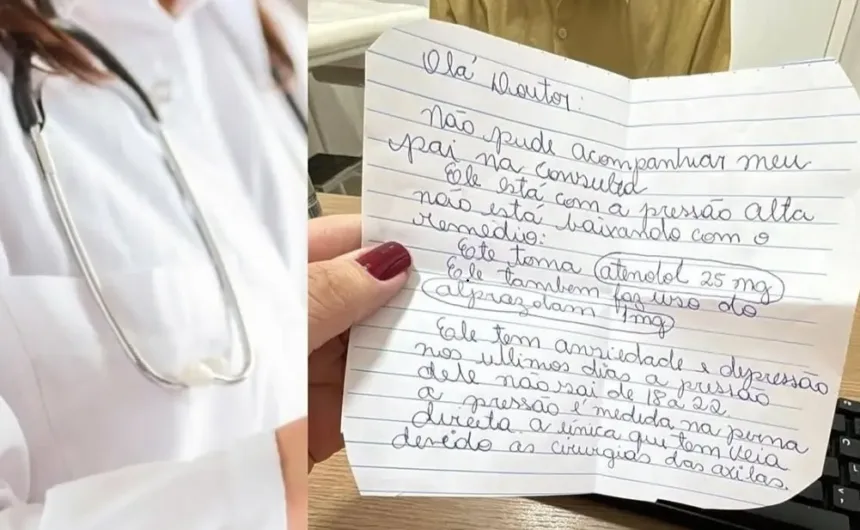 Olá Doutor:
não pude acompanhar meu
pai na consulta
Ele está com a pressão alta
não está baixando com o
remédio:
Ele toma atenolol 25 mg
Ele também faz uso do
alprazolam 1mg
Ele tem ansiedade e depressão
nos ultimos dias a pressão
dele não sai de 18 a 22
a pressão é medida na perna
direita a única que tem veia
devido as cirurgias das axilas.